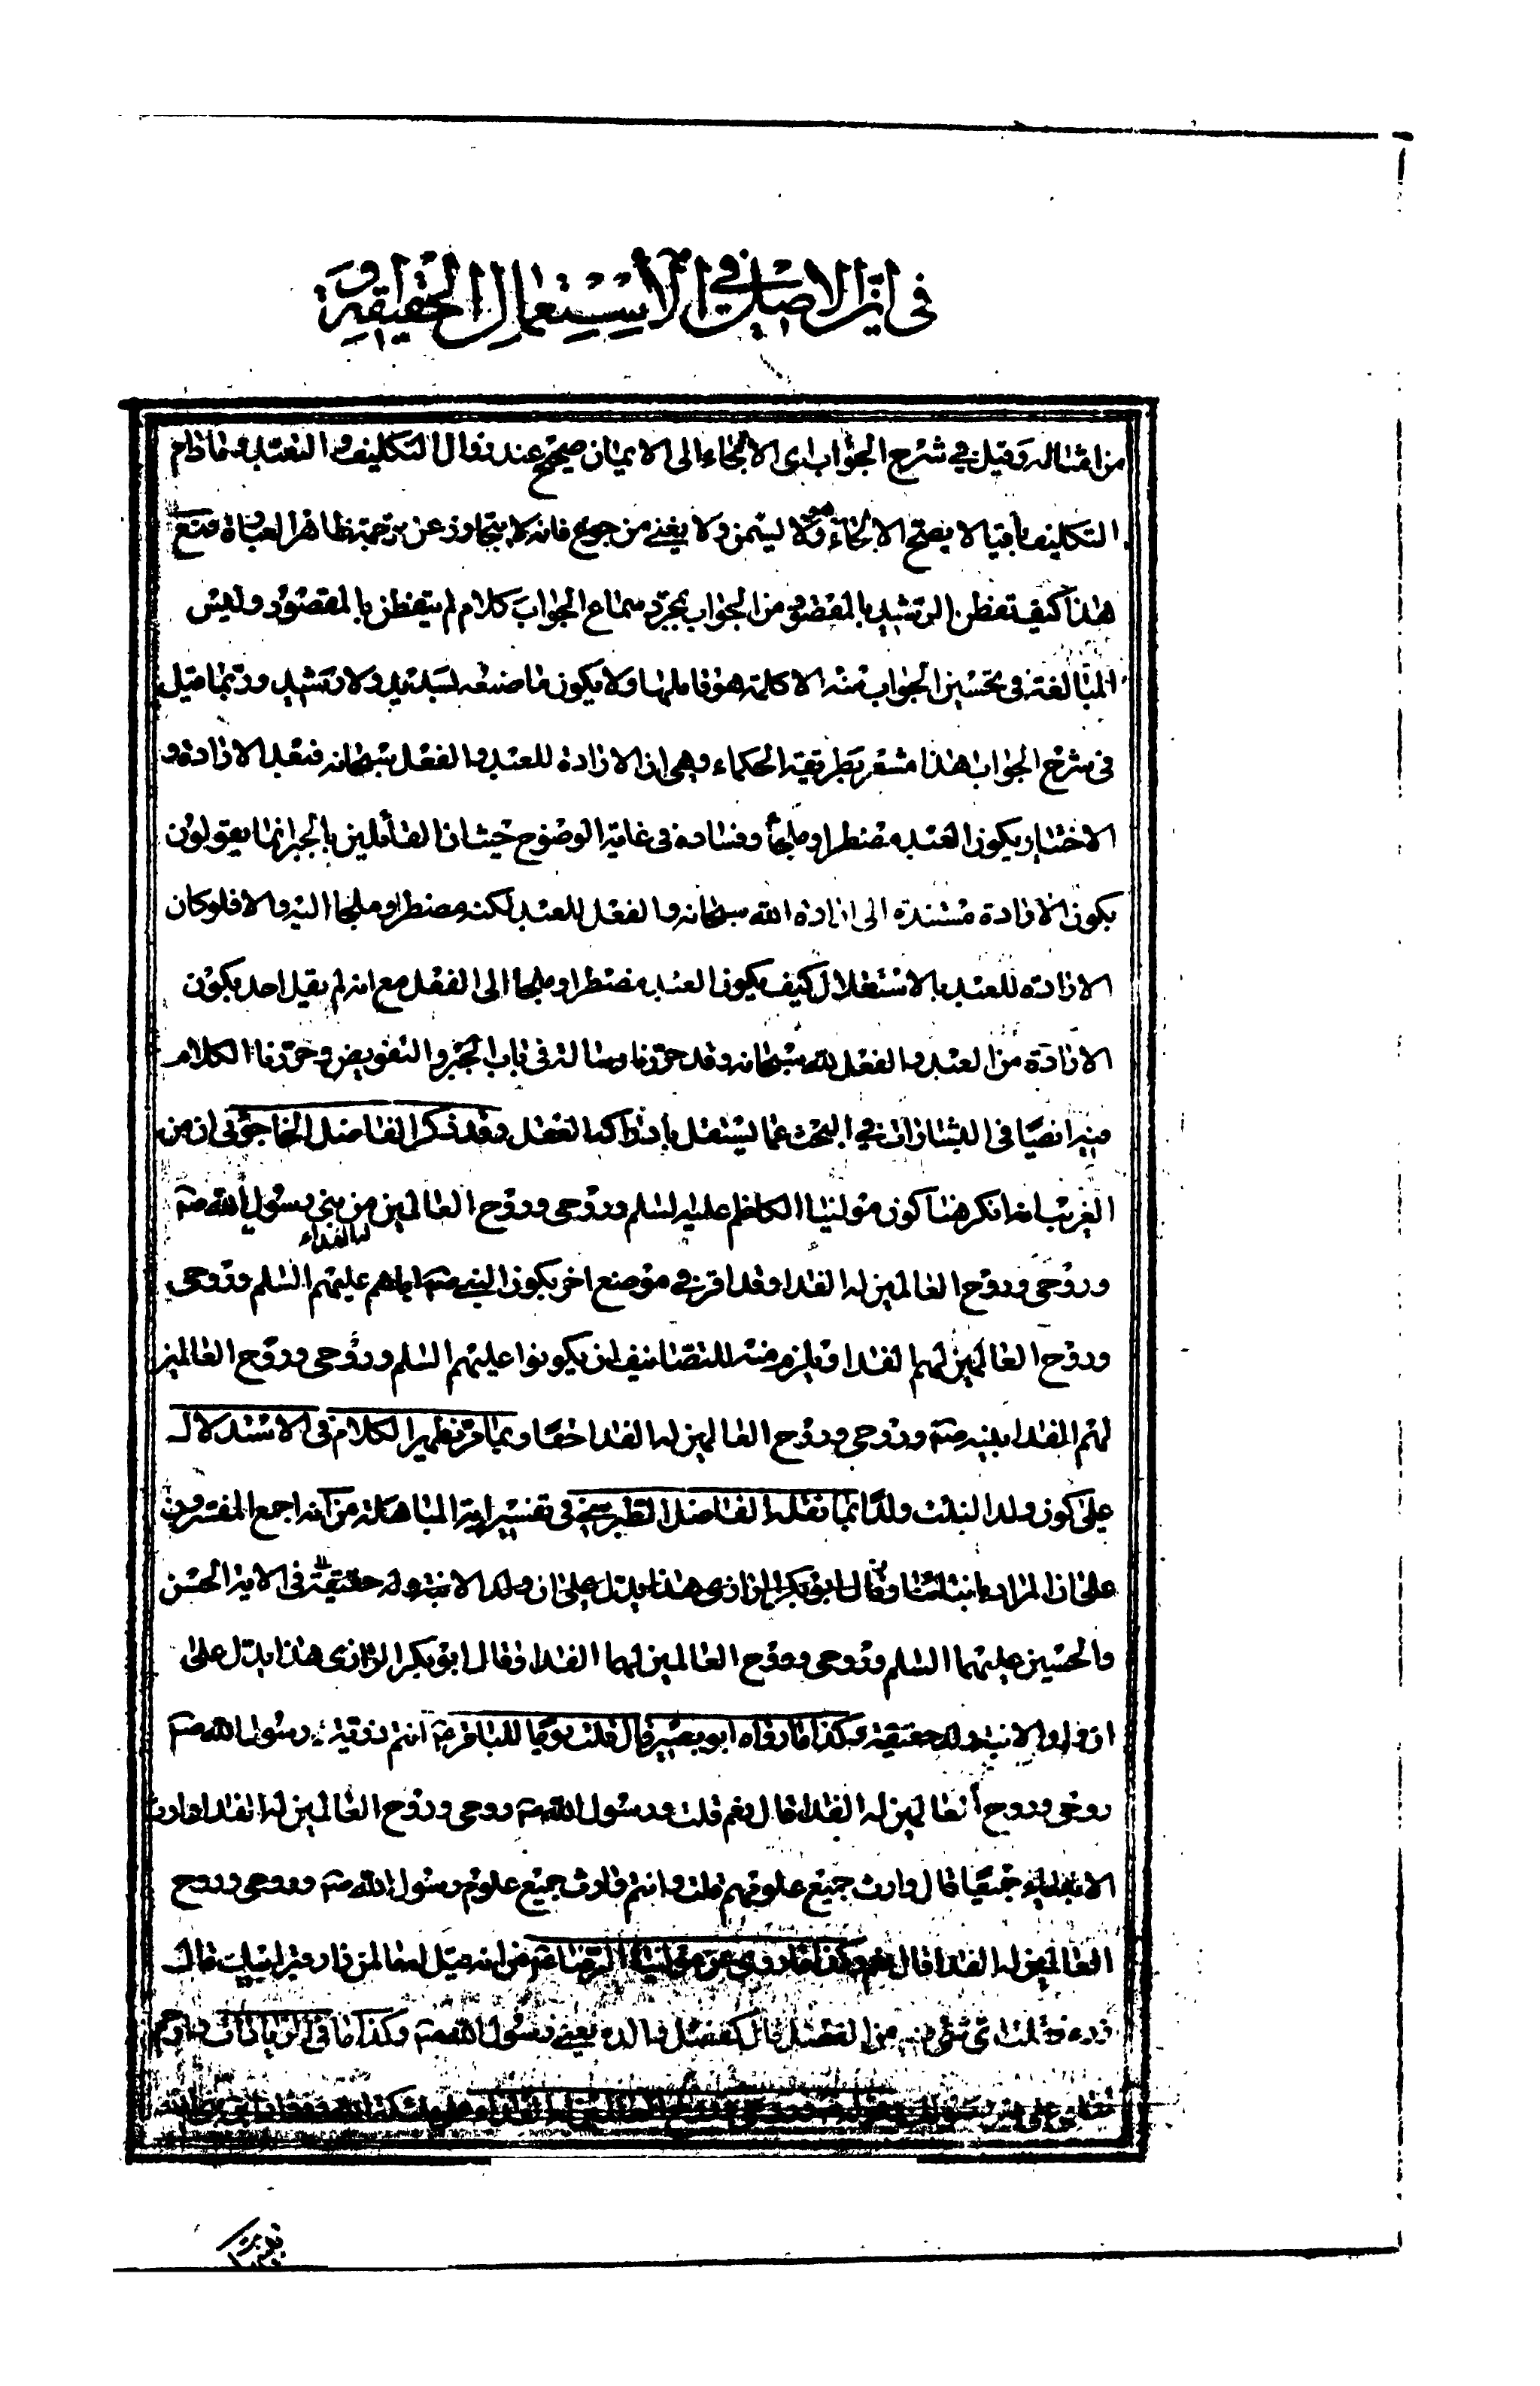 في ان الاصل في الاستعمال الحقيقة
من امثاله وقيل في شرح الجواب اى الالجاء الى الايمان صحيح عند زوال التكليف و التعبد و ما دام
التكليف باقيا لا يصح الالجاء وهو لا يسمن ولا يغنى من جوع فانه لا يتجاوز عن ترجمة ظاهر العبارة ومع
هذا كيف تفطن الرشيد بالمقصود من الجواب بمجرد سماع الجواب كلام لم يتفطن بالمقصود وليس
المبالغة في تحسين الجواب منه الا كلمة هو قائلها ولا يكون ما صنعه بسديد ولا رشيد وربما قيل
في شرح الجواب هذا مشعر بطريقة الحكماء وهى ان الارادة للعبد والفعل لله سبحانه فبعد الارادة و
الاختيار يكون العبد مضطرا وملجأ وفساده في غاية الوضوح حيث ان القائلين بالجبر انما يقولون
بكون الارادة مستندة الى ارادة الله سبحانه والفعل للعبد لكنه مضطر وملجا اليه والا فلو كان
الارادة للعبد بالاستقلال كيف يكون العبد مضطرا وملجا الى الفعل مع انه لم يقل احد بكون
الارادة من العبد والفعل لله سبحانه وقد حررنا رسالة في باب الجبر والتفويض وحررنا الكلام
فيه ايضا في البشارات في البحث عما يستقل بادراكه العقل وقد ذكر الفاضل الخاجوئى ان من
الغريب انه انكر هنا كون مولينا الكاظم عليه السلم وروحى وروح العالمين له الفداء من بنى رسول الله ص
وروحى وروح العالمين له الفدا وقد اقر في موضع اخر بكون النبي ص اباهم عليهم السلم وروحى
وروح العالمين لهم الفدا ويلزم منه للتضايف ان يكونوا عليهم السلم وروحى وروح العالمين
لهم الفدا بنيه ص وروحى وروح العالمين له الفدا حقا وبما مر نظهر الكلام في الاستدلال
على كون ولد البنت ولدا بما نقله الفاضل الطبرسي في تفسير اية المباهلة من انه اجمع المفسرون
على ان المراد بابنائنا وقال ابو بكر الرازى هذا يدل على ان ولد الابنة ولد حقيقة في الاية الحسن
والحسين عليهما السلم وروحى وروح العالمين لهما الفدا وقال ابو بكر الرازى هذا يدل على
ان ولد الابنة ولد حقيقة وكذا ما رواه ابو بصير قال قلت يوما للباقر ع انتم ذرية رسول الله ص
روحى وروح العالمين له الفدا قال نعم قلت ورسول الله ص روحى وروح العالمين له الفدا وارث
الانبياء جميعا قال وارث جميع علومهم قلت وانتم وارث جميع علوم رسول الله ص وروحى وروح
العالمين له الفدا قال نعم وكذا ما روى عن مولينا الرضا ع من انه قيل قال
من الفضل والده يعنى رسول الله ص وكذا ما في الزيارات